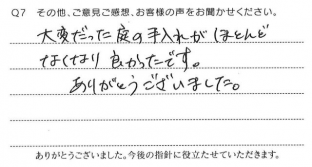 Q7 その他、ご意見ご感想、お客様の声をお聞かせください。
大変だった庭の手入れがほとんど
なくなり良かったです。
ありがとうございました。
ありがとうございました。今後の指針に役立たせていただきます。